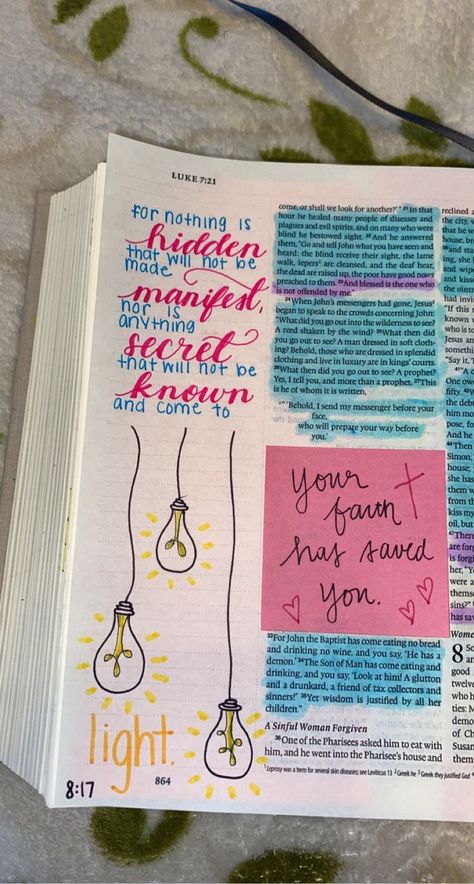 LUKE 7:21
for nothing is
hidden
that will not be
made
manifest,
nor is
anything
secret
that will not be
known
and come to
light.
8:17
864
come, or shall we look for another?'" 21In that
hour he healed many people of diseases and
plagues and evil spirits, and on many who were
blind he bestowed sight. 22And he answered
them, "Go and tell John what you have seen and
heard: the blind receive their sight, the lame
walk, lepers1 are cleansed, and the deaf hear,
the dead are raised up, the poor have good news
preached to them. 23And blessed is the one who
is not offended by me."
24When John's messengers had gone, Jesus2
began to speak to the crowds concerning John:
"What did you go out into the wilderness to see?
A reed shaken by the wind? 25What then did
you go out to see? A man dressed in soft cloth-
ing? Behold, those who are dressed in splendid
clothing and live in luxury are in kings' courts.
26What then did you go out to see? A prophet?
Yes, I tell you, and more than a prophet. 27This
is he of whom it is written,
"'Behold, I send my messenger before your
face,
who will prepare your way before
you.'
Your
faith
has saved
you.
33For John the Baptist has come eating no bread
and drinking no wine, and you say, 'He has a
demon.' 34The Son of Man has come eating and
drinking, and you say, 'Look at him! A glutton
and a drunkard, a friend of tax collectors and
sinners!' 35Yet wisdom is justified by all her
children."
A Sinful Woman Forgiven
36One of the Pharisees asked him to eat with
him, and he went into the Pharisee's house and
1 Leprosy was a term for several skin diseases; see Leviticus 13 2 Greek he 3 Greek they justified God
reclined
the city,
that he
house,